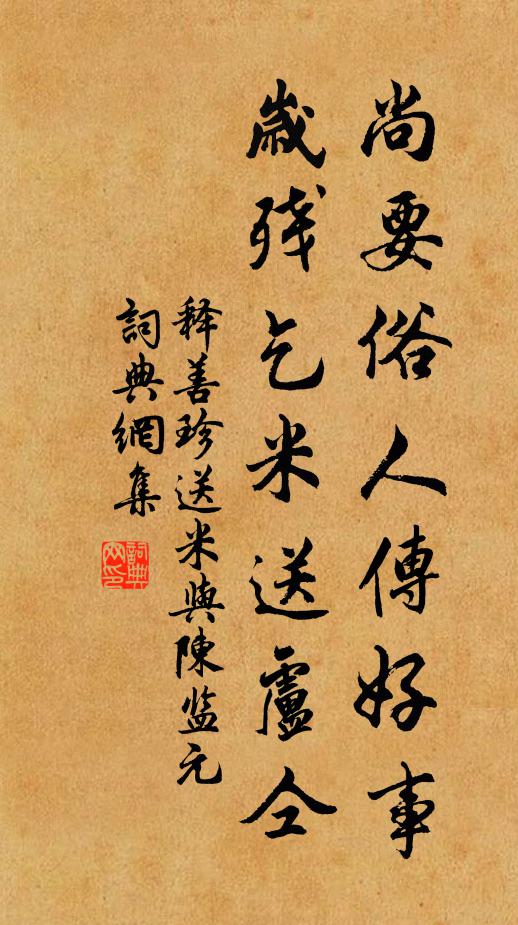 尚要俗人傳好事
歲殘乞米送盧仝
释善珍送米與陳监元
詞典網集
詞典
网印